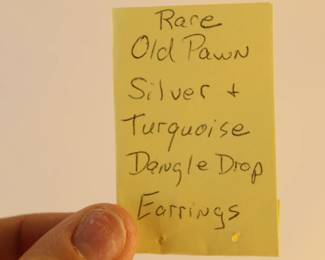 Rare
Old Pawn
Silver +
Turquoise
Dangle Drop
Earrings